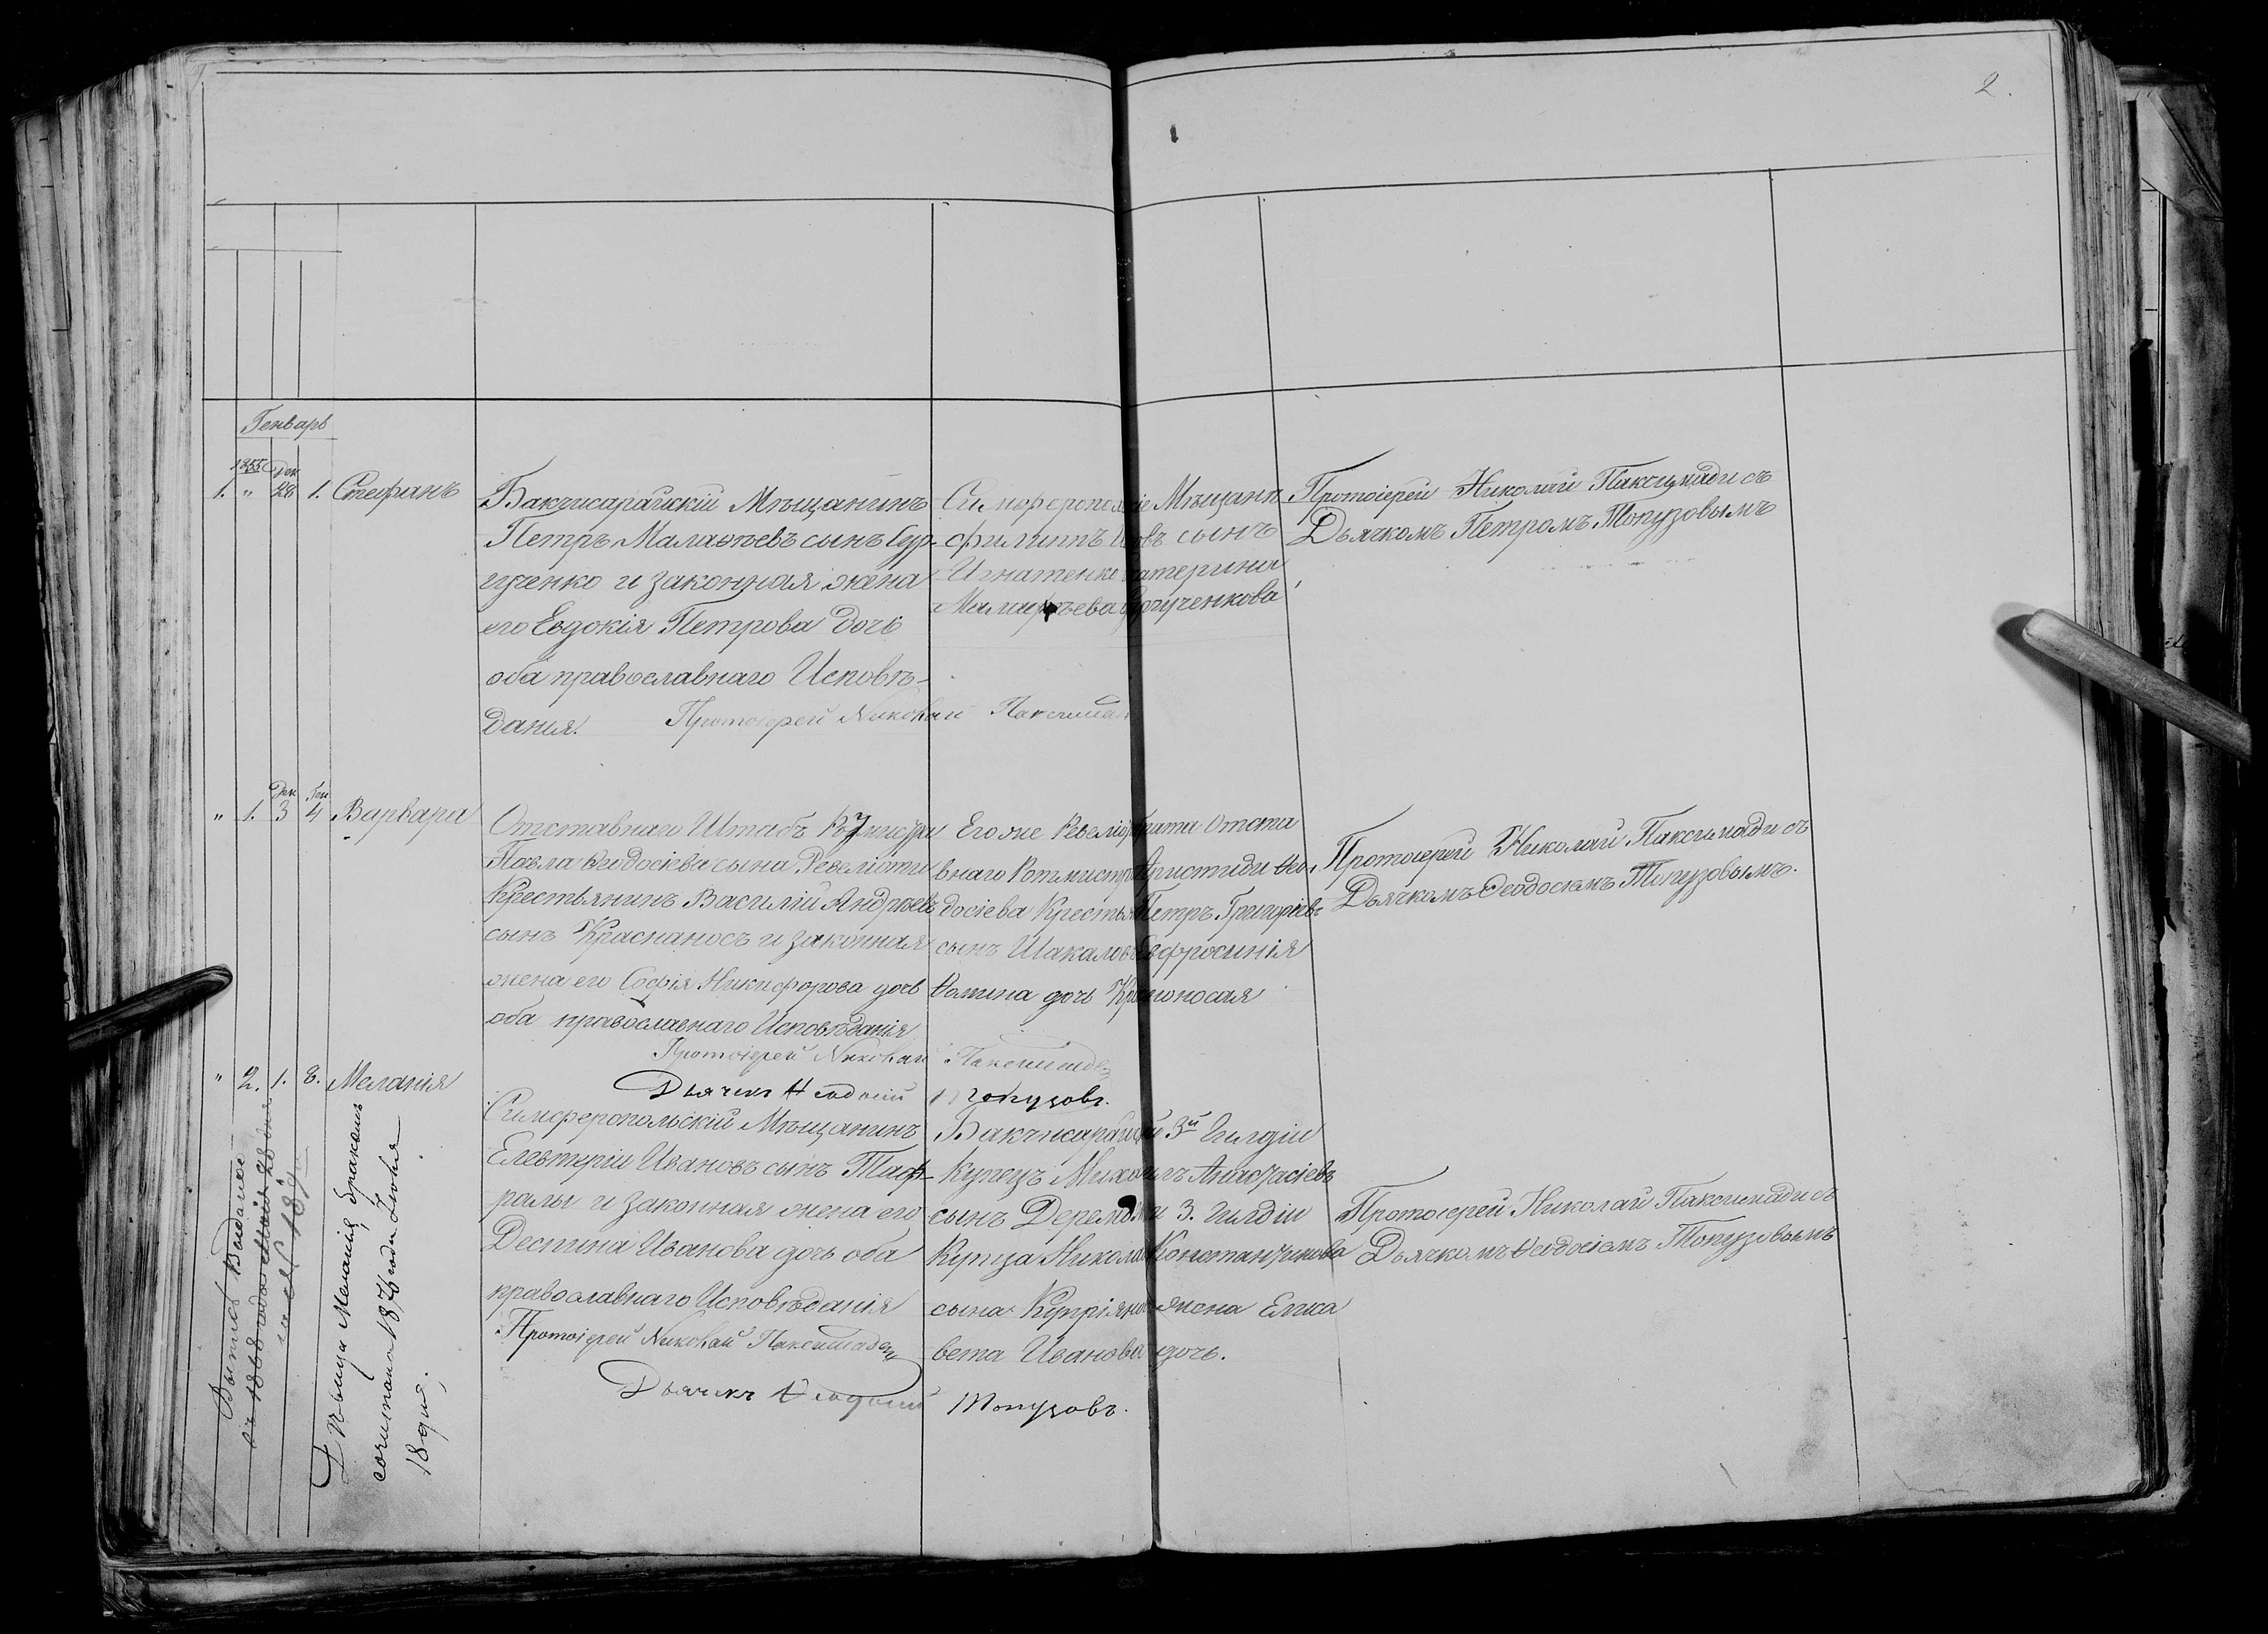 2.
Генварь
1855 Дек
1. " 28 1. Стефанъ
Бакчисарайскій Мѣщанинъ
Петръ Малаѳѣевъ сынъ Сур-
гученко и законная жена
его Евдокія Петрова дочь
оба православнаго Исповѣ-
данія.
Протоіерей Николай Паксимади
Симферопольскіе Мѣщанъ
Филиппъ сынъ
Игнатенко Катерина
Малафѣева Сургученкова
Протоіерей Николай Паксимади съ
Дьячкомъ Петромъ Топузовымъ
Дек Ген
" 1. 3 4 Варвара
Отставнаго Штабъ Ротмистра
Павла Ѳеодосіева сына Ревеліоти
Крестьянинъ Василій Андрѣевъ
сынъ Краснаносъ и законная
жена его Софія Никифорова дочь
оба православнаго Исповѣданія
Протоіерей Николай Паксимади
Дьячекъ Ѳеодосій Топузовъ.
Его же Ревеліоти брата Отста
внаго Ротмистра Аристиди Ѳео
досіева Крестья Петръ Григоріевъ
сынъ Шакаловъ Ефросинія
Ѳомина дочь Красноносая
Протоіерей Николай Паксимади съ
Дьячкомъ Ѳеодосіемъ Топузовымъ.
" 2. 1. 8. Меланія
Симферопольскій Мѣщанинъ
Елевтерій Ивановъ сынъ Таф-
ралы и законная жена его
Деспина Иванова дочь оба
православнаго Исповѣданія
Протоіерей Николай Паксимади
Дьячекъ Ѳеодосій Топузовъ.
Бакчисарайскій 3й Гилдіи
Купецъ Михаилъ Анастасіевъ
сынъ 3. Гилдіи
Купца Николая Константинова
сына Купріянова жена Елиса
вета Иванова дочь.
Протоіерей Николай Паксимади съ
Дьячкомъ Ѳеодосіемъ Топузовымъ
Выпись Выдана
1868 года 28 дня
за № 189
Дѣвица Меланія, бракомъ
сочитана 1876 года Іюля
18 дня.